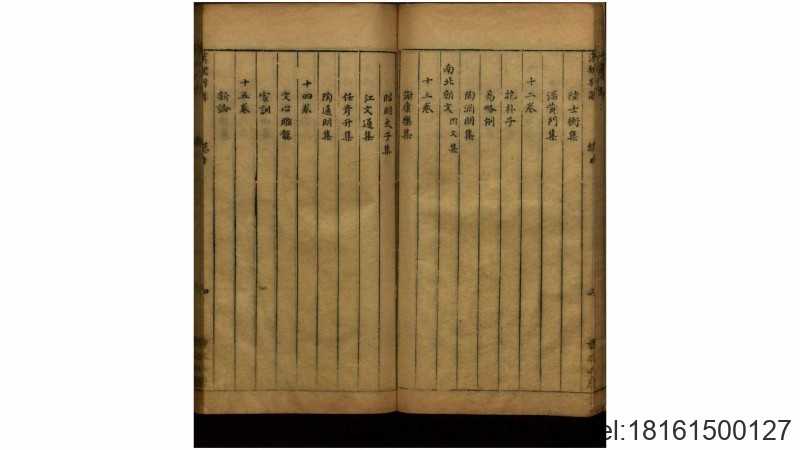 陸士衡集
潘黃門集
十二卷
抱朴子
易略例
陶淵明集
南北朝文 四文集
十三卷
謝康樂集
昭明太子集
江文通集
任彥升集
陶通明集
十四卷
文心雕龍
家訓
十五卷
新論
el:18161500127